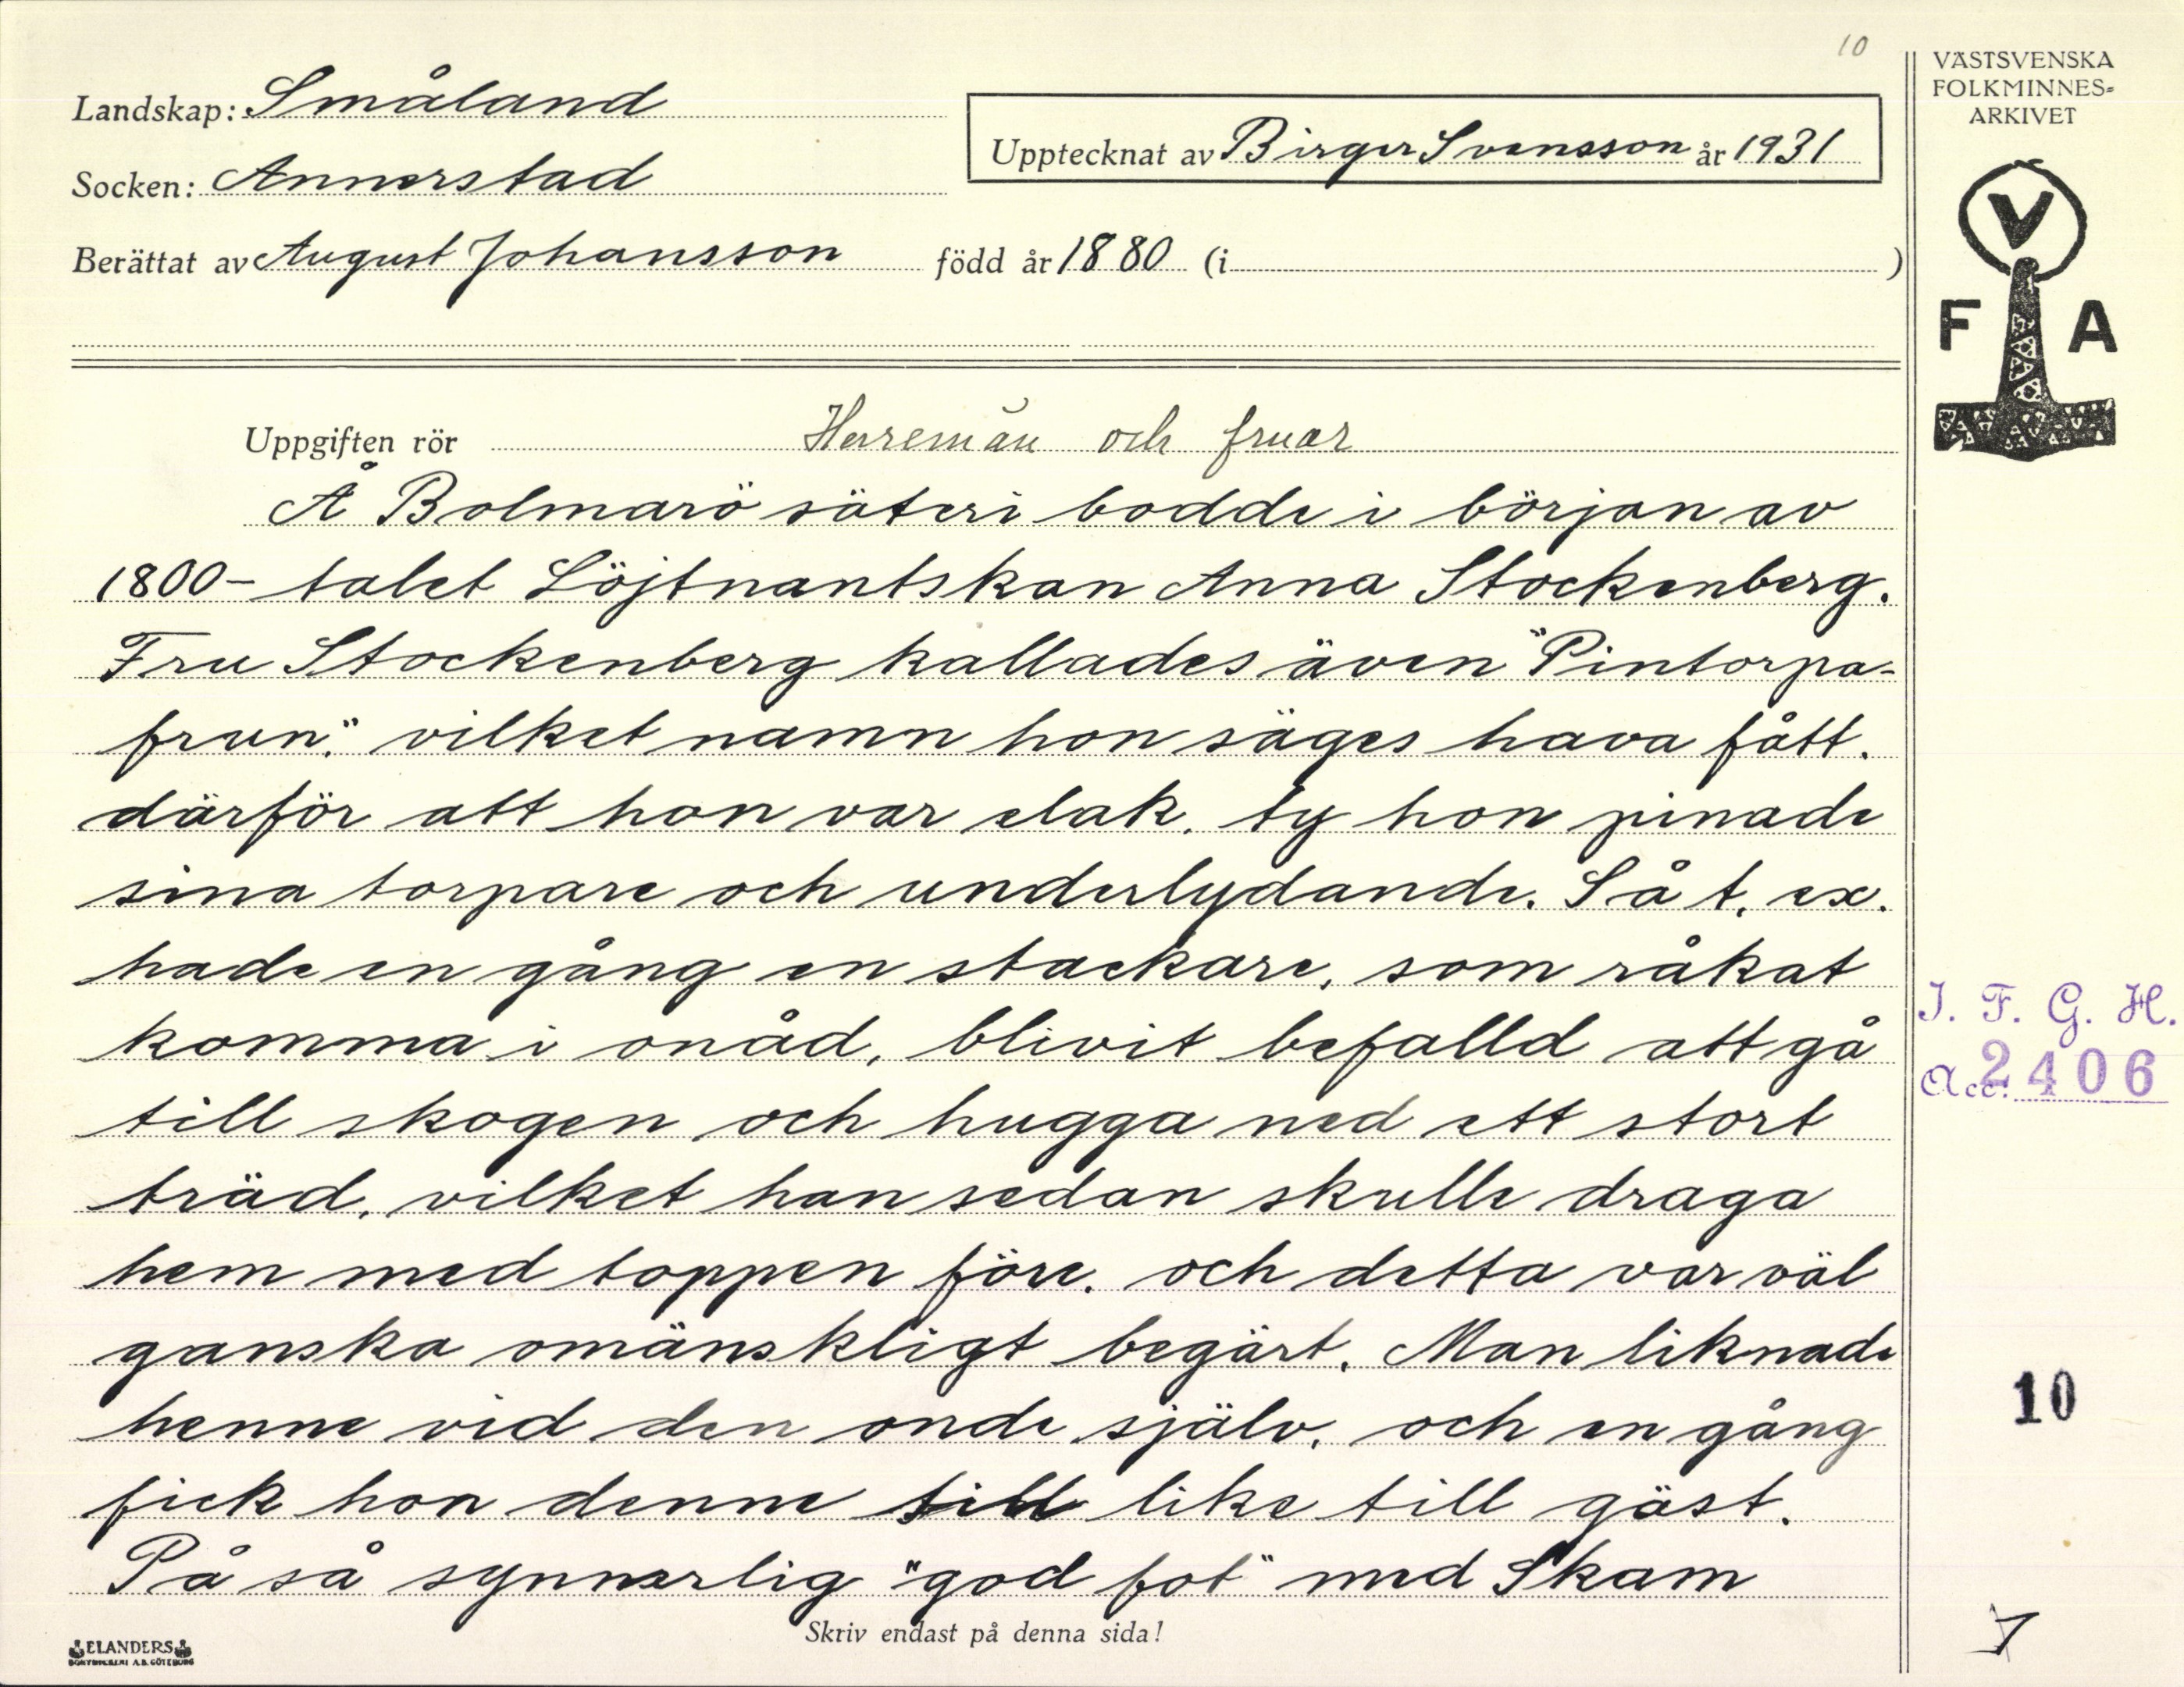 10
Landskap: Småland
Socken: Annerstad
Upptecknat av Birger Svensson år 1931
Berättat av August Johansson född år 1880 (i )
VÄSTSVENSKA
FOLKMINNES-
ARKIVET
V
F A
Uppgiften rör Herremän och fruar
Å Bolmarö säteri bodde i början av
1800-talet Löjtnantskan Anna Stockenberg.
Fru Stockenberg kallades även "Pintorpa-
frun." vilket namn hon säges hava fått.
därför att hon var elak. ty hon pinade
sina torpare och underlydande. Så t. ex.
hade en gång en stackare, som råkat
komma i onåd, blivit befalld att gå
till skogen och hugga ned ett stort
träd, vilket han sedan skulle draga
hem med toppen före. och detta var väl
ganska omänskligt begärt. Man liknade
henne vid den onde själv, och en gång
fick hon denne till like till gäst.
På så synnerlig "god fot" med Skam
I. F. G. H.
Acc. 2406
10
Skriv endast på denna sida!
ELANDERS
BOKTRYCKERI A.B. GÖTEBORG